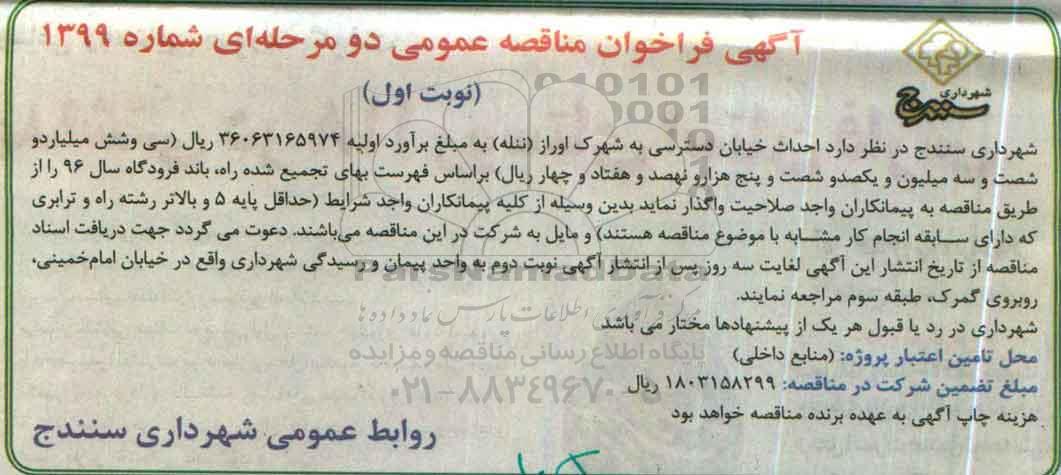 آگهی فراخوان مناقصه عمومی دو مرحله‌ای شماره ۱۳۹۹
(نوبت اول)
شهرداری
سنندج
شهرداری سنندج در نظر دارد احداث خیابان دسترسی به شهرک اوراز (ننله) به مبلغ برآورد اولیه ۳۶۰۶۳۱۶۵۹۷۴ ریال (سی وشش میلیاردو
شصت و سه میلیون و یکصدو شصت و پنج هزارو نهصد و هفتاد و چهار ریال) براساس فهرست بهای تجمیع شده راه، باند فرودگاه سال ۹۶ را از
طریق مناقصه به پیمانکاران واجد صلاحیت واگذار نماید بدین وسیله از کلیه پیمانکاران واجد شرایط (حداقل پایه ۵ و بالاتر رشته راه و ترابری
که دارای سابقه انجام کار مشابه با موضوع مناقصه هستند) و مایل به شرکت در این مناقصه می‌باشند. دعوت می گردد جهت دریافت اسناد
مناقصه از تاریخ انتشار این آگهی لغایت سه روز پس از انتشار آگهی نوبت دوم به واحد پیمان و رسیدگی شهرداری واقع در خیابان امام‌خمینی،
روبروی گمرک، طبقه سوم مراجعه نمایند.
شهرداری در رد یا قبول هر یک از پیشنهادها مختار می باشد
محل تامین اعتبار پروژه: (منابع داخلی)
مبلغ تضمین شرکت در مناقصه: ۱۸۰۳۱۵۸۲۹۹ ریال
هزینه چاپ آگهی به عهده برنده مناقصه خواهد بود
روابط عمومی شهرداری سنندج
ParsNamadData
مرکز فرآوری اطلاعات پارس نماد داده ها
پایگاه اطلاع رسانی مناقصه و مزایده
۰۲۱-۸۸۳۴۹۶۷۰-۵